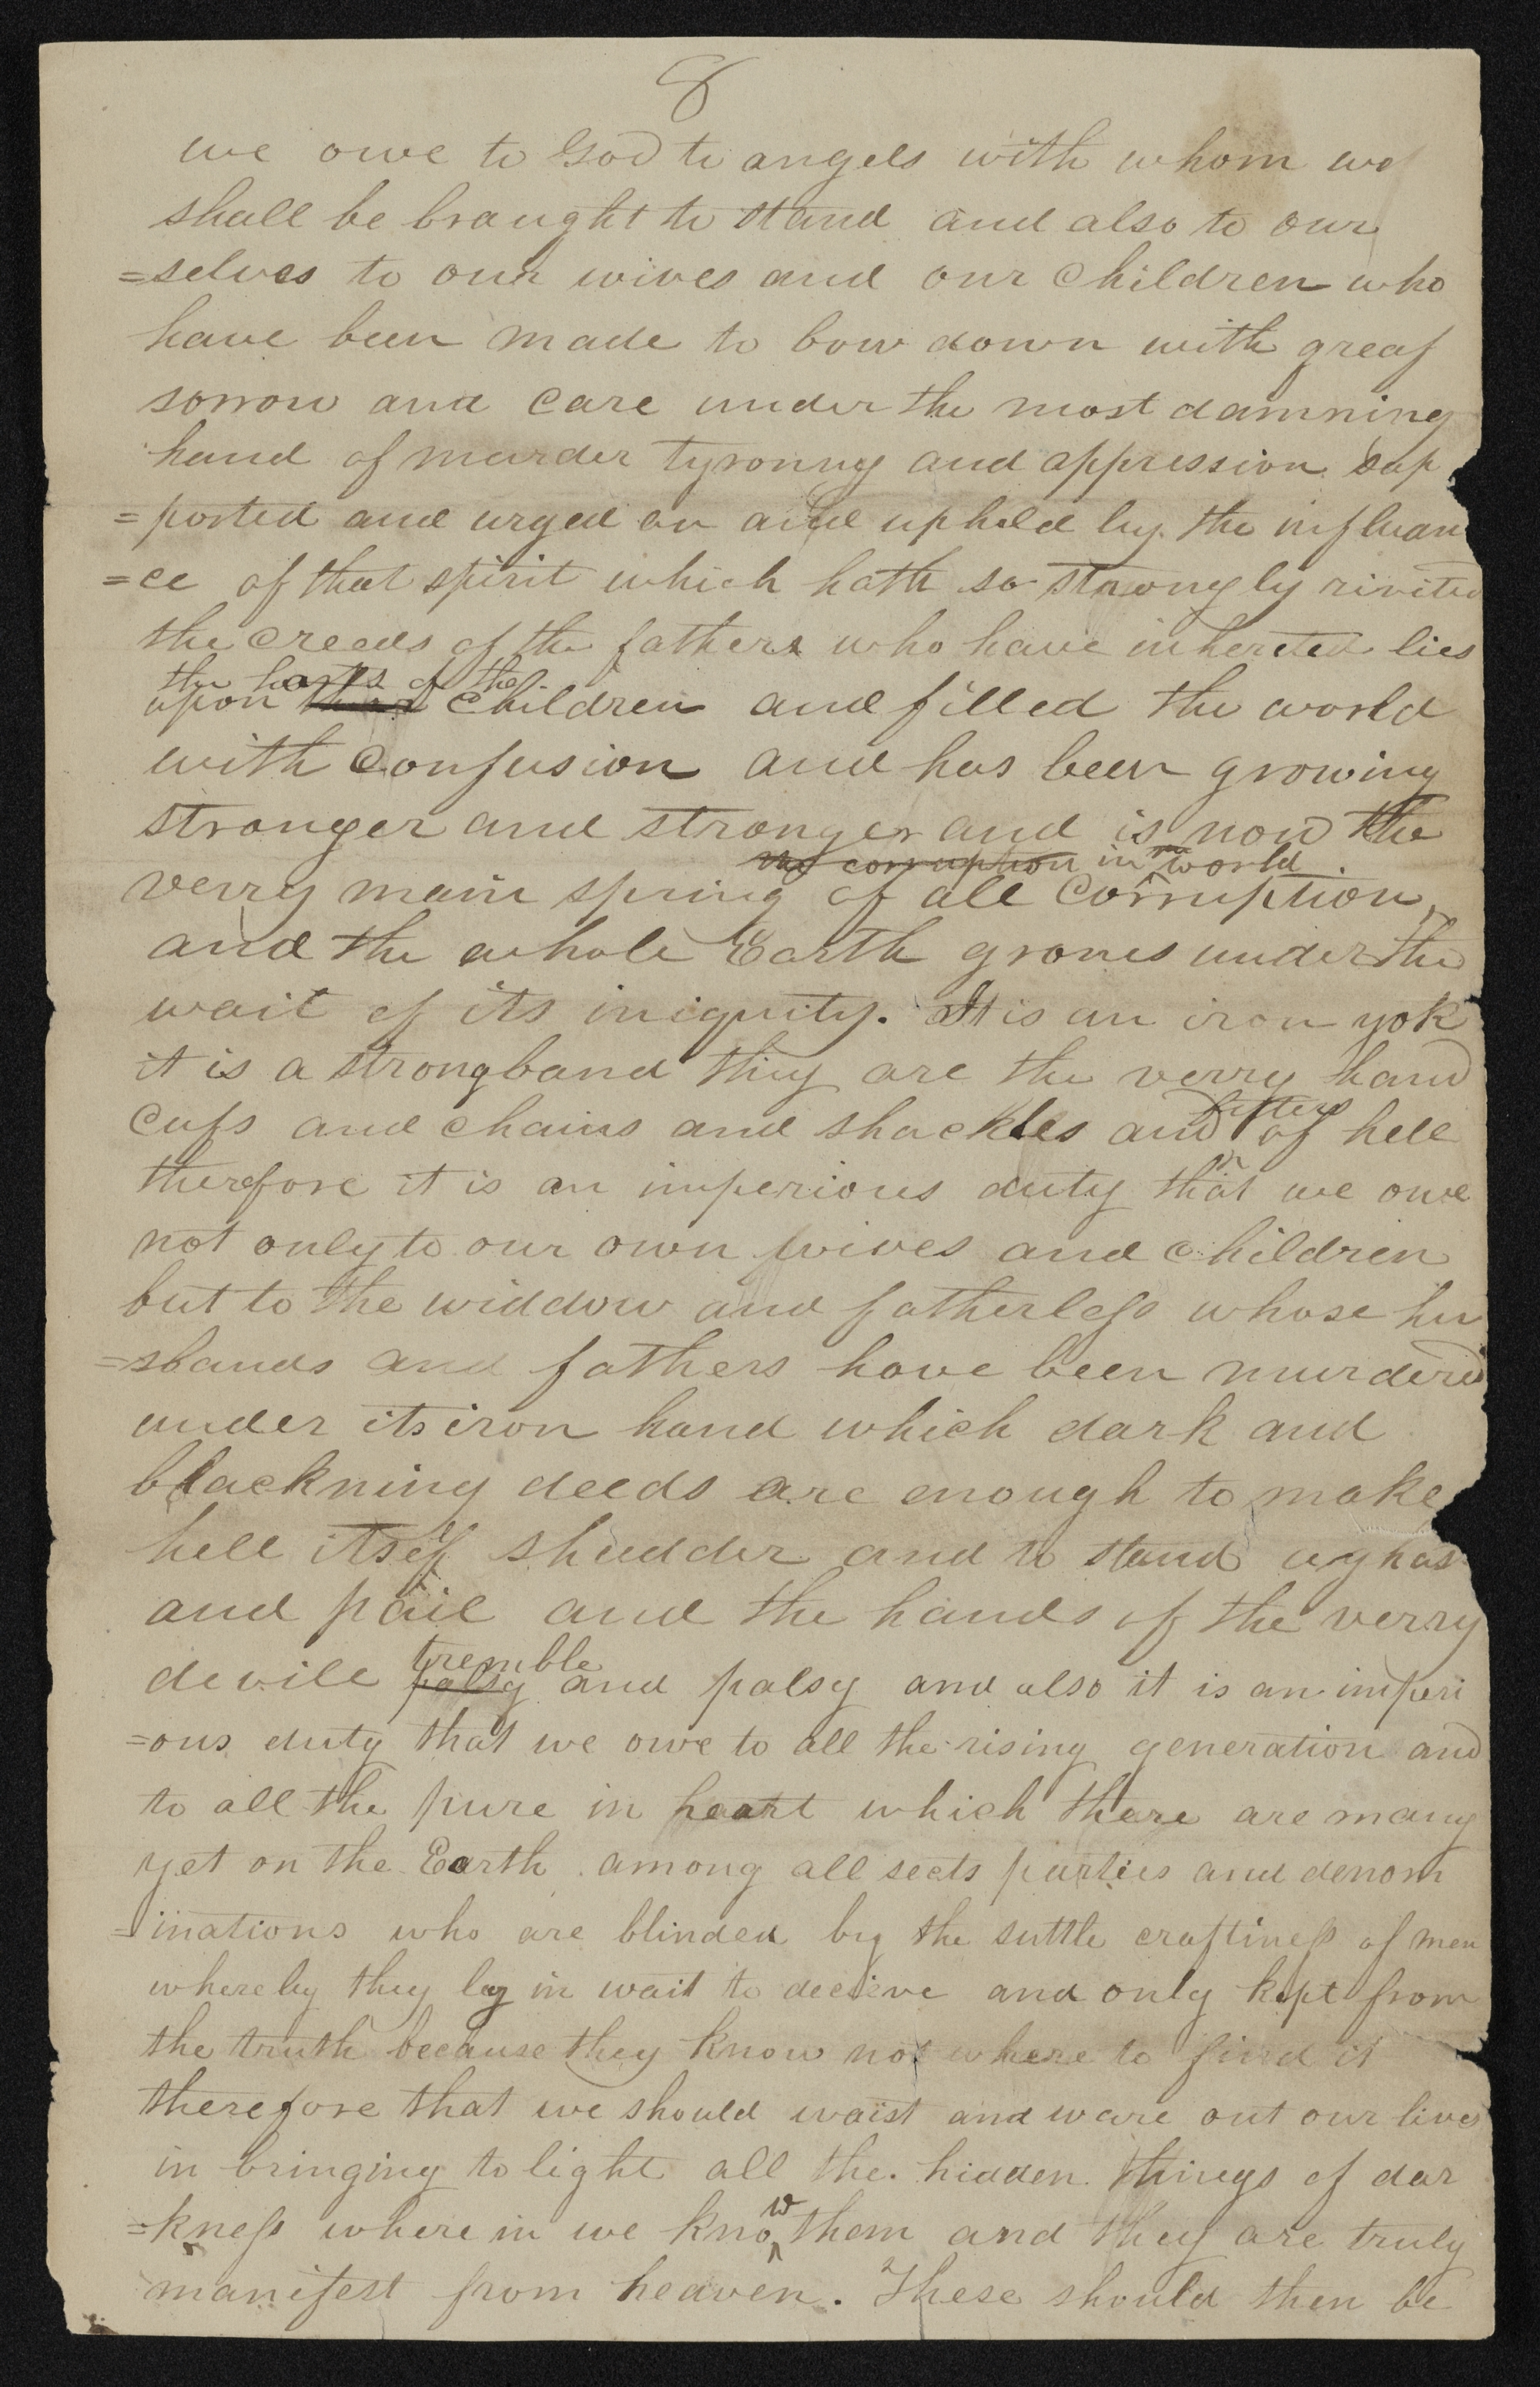 8
we owe to God to angels with whom we
shall be braught to stand and also to our
=selves to our wives and our children who
have been made to bow down with greaf
sorrow and care under the most damning
hand of murder tyronny and oppression sup
=ported and urged on and upheld by the influan
=ce of that spirit which hath so strongly rivited
the creeds of the fathers who have inhereted lies
the harts of the
upon their children and filled the world
with confusion and has been growing
stronger and stronger and is now the
the corruption in the world
verry main spring of all corruption
and the whole Earth grones under the
wait of its iniquity. It is an iron yok
it is a strong band they are the verry hand
cufs and chains and shackles and fetters of hell
therefore it is an imperious duty that we owe
not only to our own wives and children
but to the widdow and fatherless whose hu
=sbands and fathers have been murdered
under its iron hand which dark and
blackning deeds are enough to make
hell itself shudder and to stand aghast
and pail and the hands of the verry
tremble
devile palsy and palsy and also it is an imperi
=ous duty that we owe to all the rising generation and
to all the pure in heart which there are many
yet on the Earth among all sects parties and denom
=inations who are blinded by the suttle craftiness of men
whereby they lay in wait to decieve and only kept from
the truth because they know not where to find it
therefore that we should waist and ware out our lives
in bringing to light all the hidden things of dar
=kness where in we know them and they are truly
manifest from heaven. These should then be